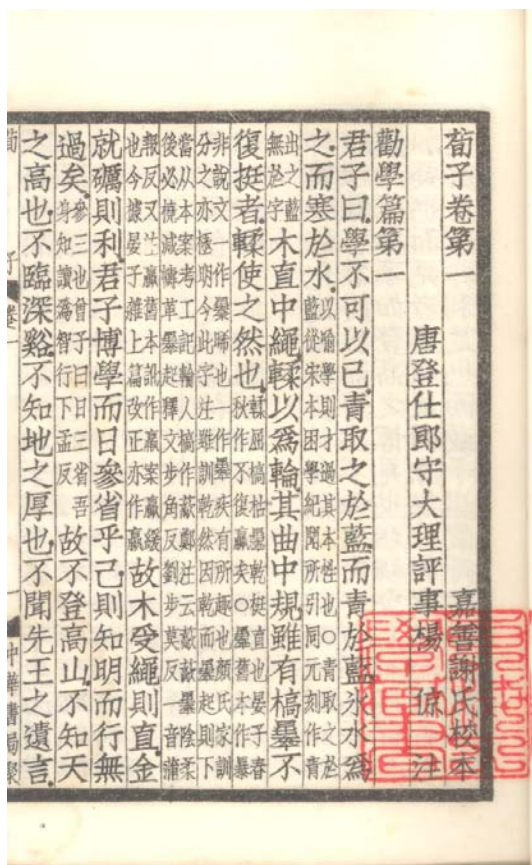 荀子卷第一
嘉善謝氏校本
唐登仕郎守大理評事楊 倞 注
勸學篇第一
君子曰學不可以已青取之於藍而青於藍冰水爲
之而寒於水以喻學則才過其本性也○青取之於藍從宋本困學紀聞所引同元刻作青出之藍無於字木直中繩輮以爲輪其曲中規雖有槁暴不
復挺者輮使之然也輮屈槁枯暴乾挺直也晏子春秋作不復贏矣○暴舊本作暴非說文一作暴晞也一作暴疾有所趣也顏氏家訓分之亦極明今此字注雖訓乾然因乾而暴起則下當从本案考工記輪人槁作藃鄭注云藃藃暴陰柔後必橈減幬革暴起釋文步角反劉步莫反一音蒲報反又生贏舊本訛作羸案贏緩也今據晏子雜上篇改正亦作嬴故木受繩則直金
就礪則利君子博學而日參省乎己則知明而行無
過矣參三也曾子曰日三省吾身知讀爲智行下孟反故不登高山不知天
之高也不臨深谿不知地之厚也不聞先王之遺言
荀子 卷一
一 中華書局聚